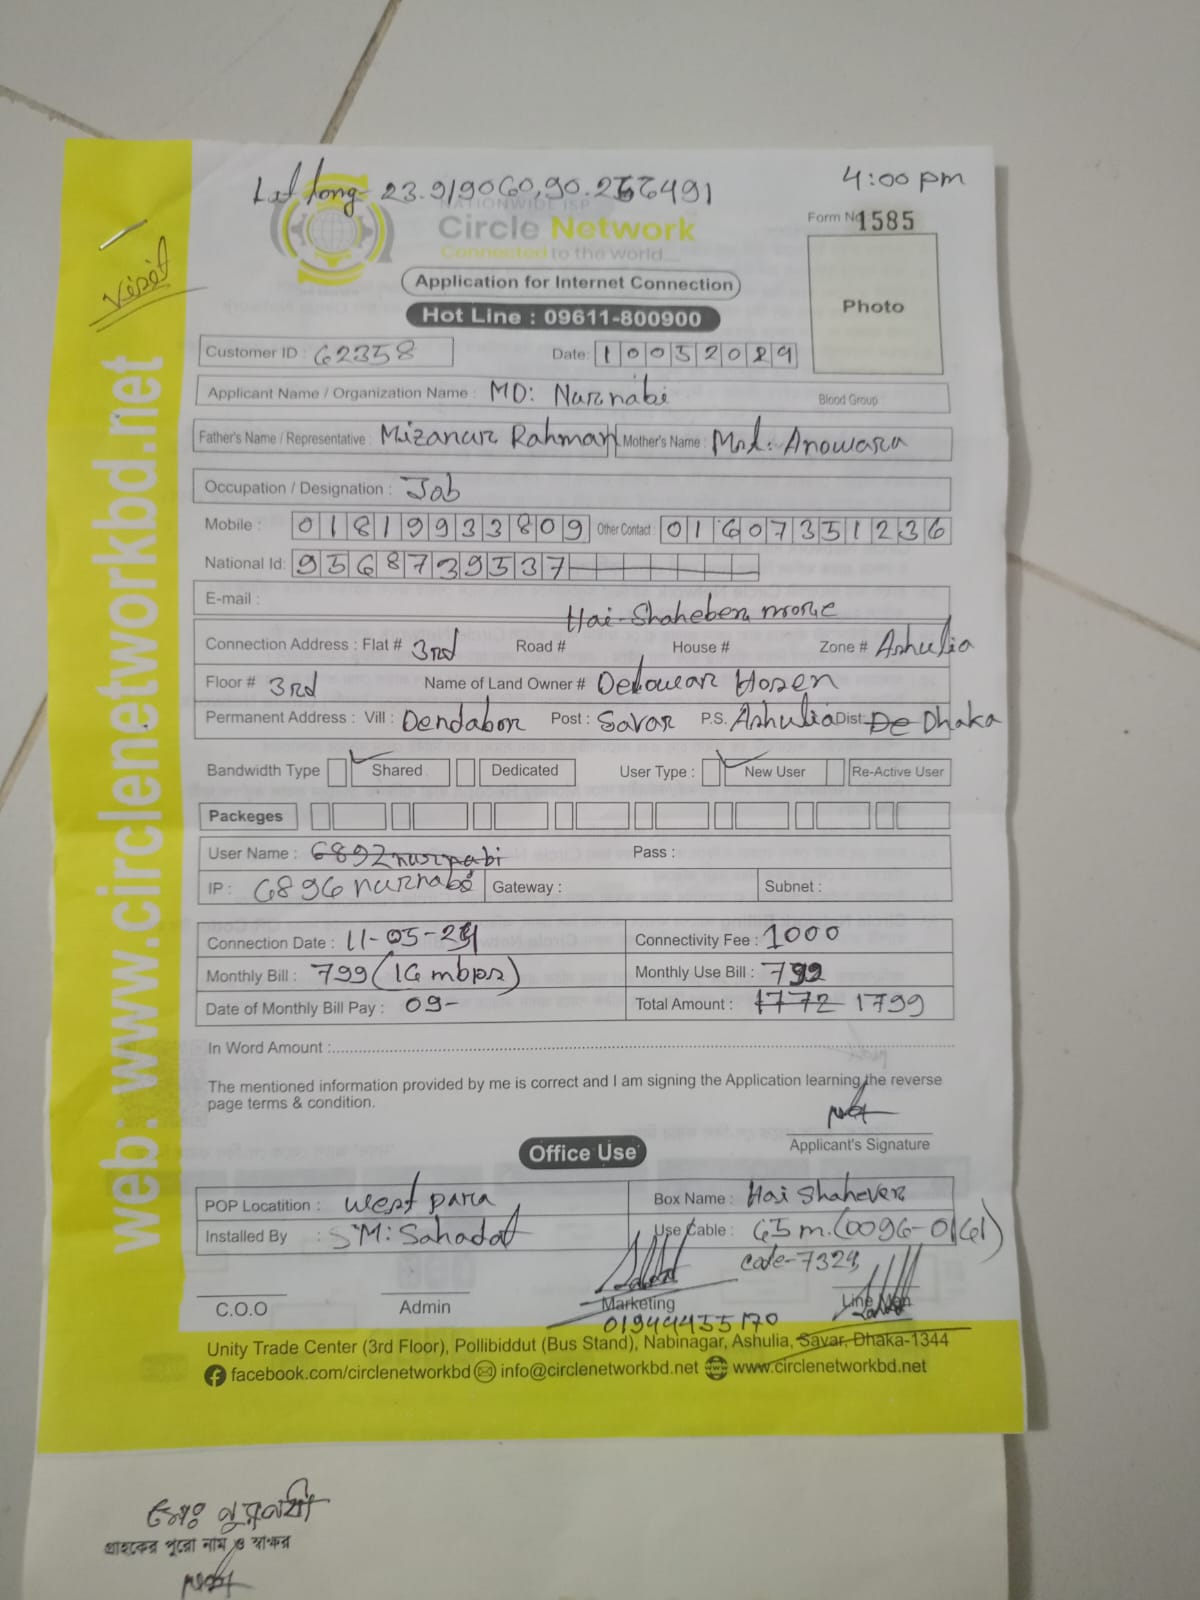 Lat long- 23.919060,90.266491
4:00 pm
NATIONWIDE ISP
Circle Network
Connected to the world...
Form No 1585
Photo
Visit
Application for Internet Connection
Hot Line : 09611-800900
Customer ID : 62358 Date: 10052024
Applicant Name / Organization Name : MD: Nurnabi Blood Group
Father's Name / Representative : Mizanur Rahman Mother's Name : Mst: Anowara
Occupation / Designation : Job
Mobile : 01819933809 Other Contact : 01607351236
National Id: 9568739537
E-mail :
Hai-Shaheber more
Connection Address : Flat # 3rd Road # House # Zone # Ashulia
Floor # 3rd Name of Land Owner # Delowar Hosen
Permanent Address : Vill : Dendabor Post : Savar P.S. Ashulia Dist: De Dhaka
Bandwidth Type Shared Dedicated User Type : New User Re-Active User
Packeges
User Name : 6892nurnabi Pass :
IP : 6896nurnabi Gateway : Subnet :
Connection Date : 11-05-24 Connectivity Fee : 1000
Monthly Bill : 799 (16 mbps) Monthly Use Bill : 799
Date of Monthly Bill Pay : 09- Total Amount : 1772 1799
In Word Amount :
The mentioned information provided by me is correct and I am signing the Application learning the reverse
page terms & condition.
Applicant's Signature
Office Use
POP Locatition : West para Box Name : Hai Shahever
Installed By : SM: Sahadat Use Cable : 65 m. (0096-0161)
code-7324
C.O.O Admin Marketing Line Man
01944455170
Unity Trade Center (3rd Floor), Pollibiddut (Bus Stand), Nabinagar, Ashulia, Savar, Dhaka-1344
facebook.com/circlenetworkbd info@circlenetworkbd.net www.circlenetworkbd.net
web: www.circlenetworkbd.net
মোঃ নুরনবী
গ্রাহকের পুরো নাম ও স্বাক্ষর